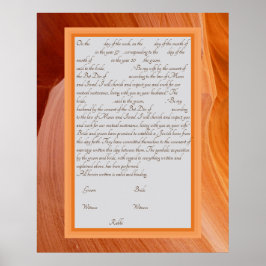 On the day of the week, the day of the month of
in the year 57 corresponding to the day of the
month of in the year 20 the groom,
said to the bride, "Being my wife by the consent of
the Bet Din of according to the law of Moses
and Israel, I will cherish and respect you and work for our
mutual sustenance, living with you as your husband." The
bride, said to the groom, "Being
your husband by the consent of the Bet Din of according
to the law of Moses and Israel, I will cherish and respect you
and work for our mutual sustenance, living with you as my wife."
Bride and groom have promised to establish a Jewish home from
this day forth. They have committed themselves to the covenant of
every day written this day between them. The symbolic acquisition
by the groom and bride, with regard to everything written and
explained above, has been performed.
All herein written is valid and binding.
Groom Bride
Witness Witness
Rabbi